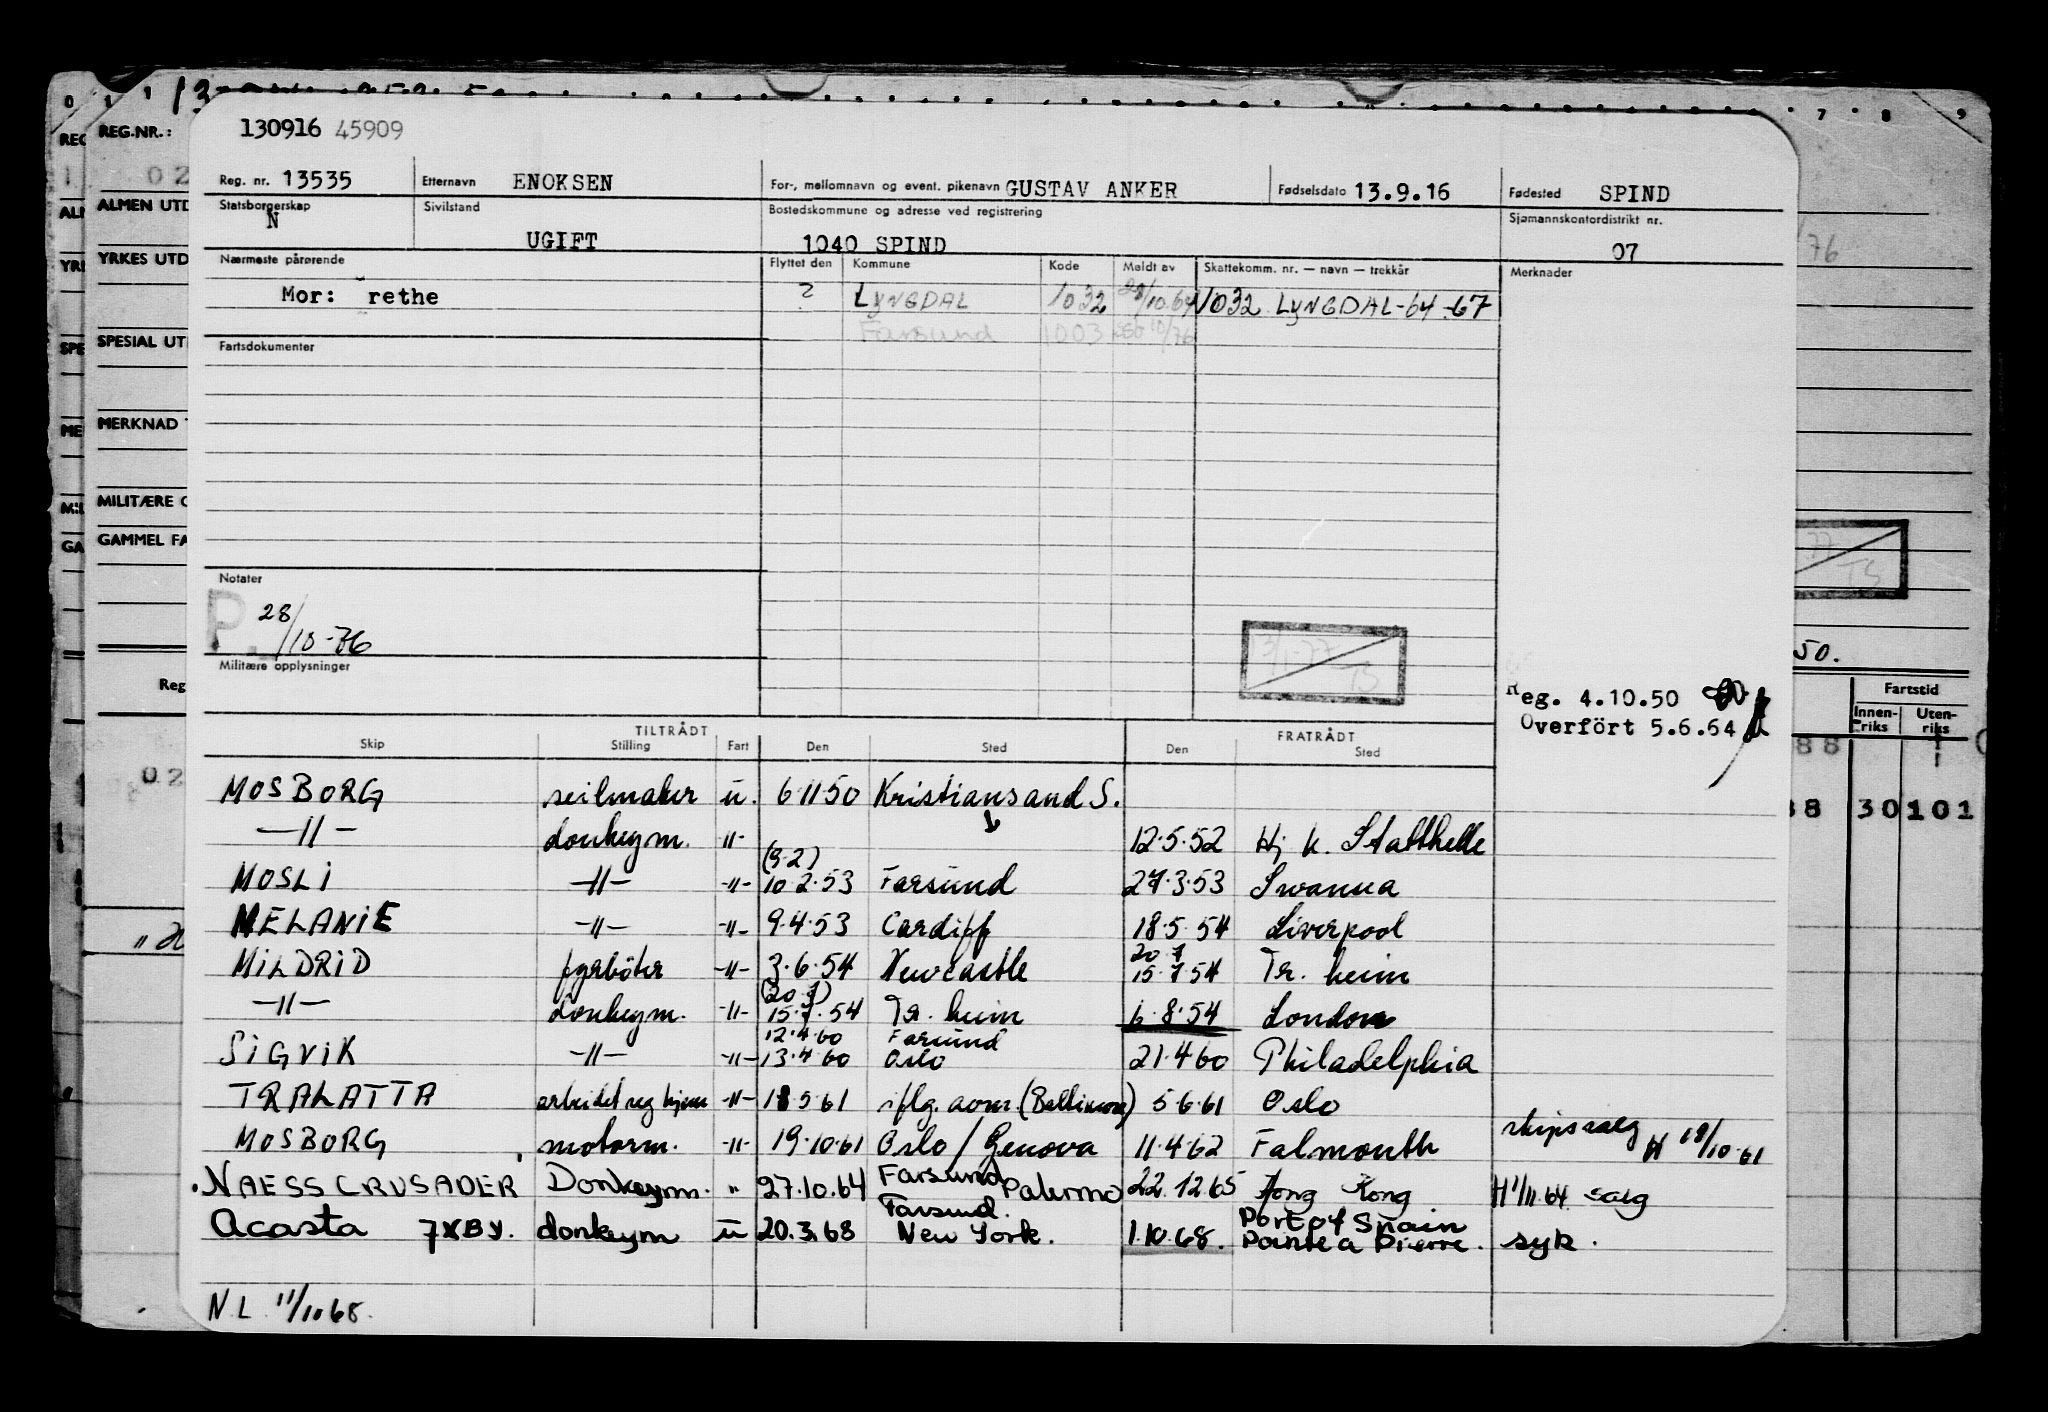 130916 45909
Reg. nr. 13535 Etternavn ENOKSEN For-, mellomnavn og event. pikenavn GUSTAV ANKER Fødselsdato 13.9.16 Fødested SPIND
Statsborgerskap N Sivilstand UGIFT Bostedskommune og adresse ved registrering 1040 SPIND Sjømannskontordistrikt nr. 07
Nærmeste pårørende Flyttet den Kommune Kode Meldt av Skattekomm. nr. — navn — trekkår Merknader
Mor: rethe ? LYNGDAL 1032 28/10.64 1032 LYNGDAL-64-67
Farsund 1003 10/76
Fartsdokumenter
Notater
P. 28/10-76
Militære opplysninger
Reg. 4.10.50
Overført 5.6.54
TILTRÅDT FRATRÅDT
Skip Stilling Fart Den Sted Den Sted
MOSBORG seilmaker u. 6.11 50 Kristiansand S.
—"— donkeym. -"- 12.5.52 Hj k. Stathelle
(9.2)
MOSLI —"— -"- 10 2.53 Farsund 27.3.53 Swansea
MELANIE —"— -"- 9.4.53 Cardiff 18.5.54 Liverpool
20 7
MILDRID fyrböter -"- 3.6.54 Newcastle 15.7.54 Tr. heim
(20.7)
—"— donkeym. -"- 15.7.54 Tr. heim 6.8.54 London
12.4.60 Farsund
SIGVIK —"— -"- 13.4.60 Oslo 21.4.60 Philadelphia
TRALATTA arbeidet seg hjem -"- 18 5.61 iflg. aom (Baltimore) 5.6.61 Oslo
MOSBORG motorm. -"- 19.10.61 Oslo / Genova 11.4.62 Falmouth skipssalg H 18/10.61
NAESS CRUSADER Donkeym. " 27.10.64 Farsund Palermo 22.12.65 Hong Kong H 1/11.64 salg
Farsund. Port of Spain
Acasta 7XBY. donkeym u 20.3.68 New York. 1.10.68. Pointe a Pierre. syk.
N.L. 11/10 68.
REG.NR.:
02
ALMEN UTD
YRKES UTD
SPESIAL UT
MERKNAD
MILITÆRE O
GAMMEL FA
Reg
02
7 8 9
76
50.
Fartstid
Innen-riks Uten-riks
88
88 30 101